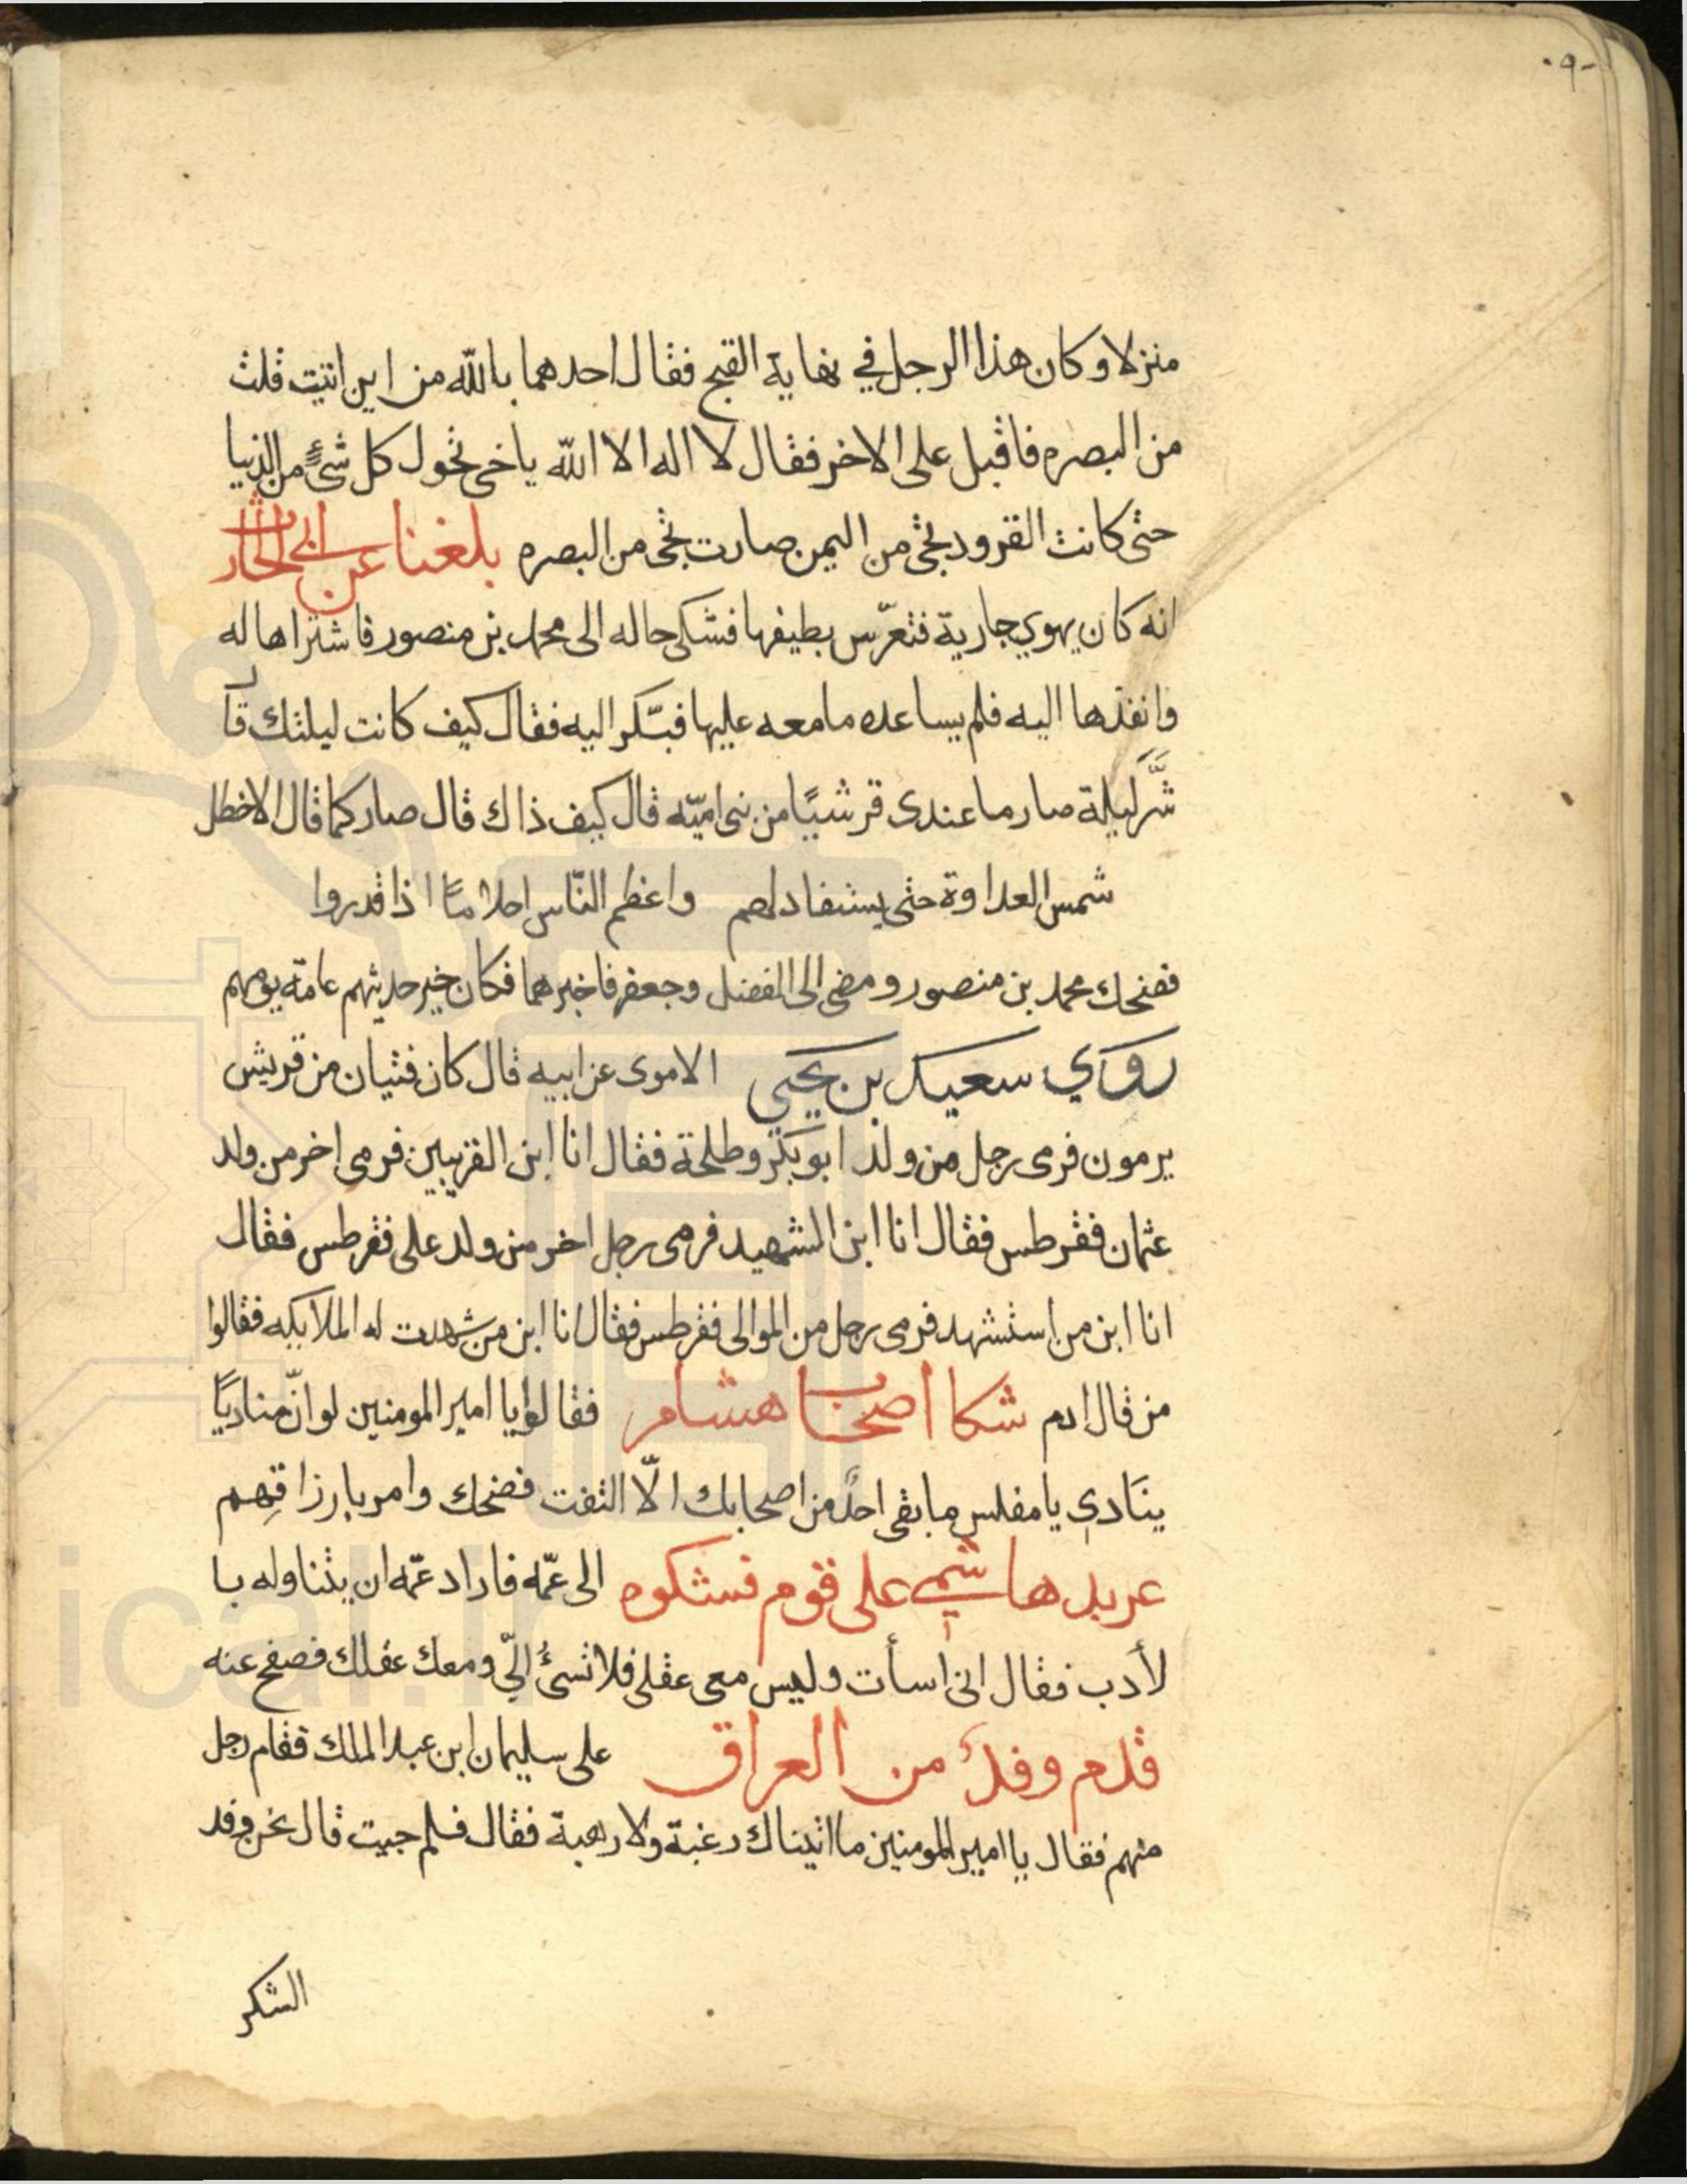 ۹۰
منزلا وكان هذا الرجل في نهاية القبح فقال احدهما بالله من اين اتيت قلت
من البصره فاقبل على الاخر فقال لا اله الا الله ياخى تحول كل شئ من الدنيا
حتى كانت القرود تجى من اليمن صارت تجى من البصره بلغنا عن ابى
انه كان يهوي جارية فتعرّس بطيفها فشكى حاله الى محمد بن منصور فاشتراها له
وانفذها اليه فلم يساعده مامعه عليها فبّكر اليه فقال كيف كانت ليلتك قال
شَّر ليلة صار ما عندى قرشيًا من بنى اميّه قال كيف ذاك قال صار كما قال الاخطل
شمس العداوة حتى يستفاد لهم واعظم النّاس احلامًا اذا قدروا
فضحك محمد بن منصور ومضى الى الفضل وجعفر فاخبرهما فكان خبر حديثهم عامّة يومهم
روي سعيد بن يحيى الاموى عن ابيه قال كان فتيان من قريش
يرمون فرمى رجل من ولد ابو بكر وطلحة فقال انا ابن القرنيين فرمى اخر من ولد
عثمان فقرطس فقال انا ابن الشهيد فرمى رجل اخر من ولد على فقرطس فقال
انا ابن من استشهد فرمى رجل من الموالى فقرطس فقال انا ابن من شهدت له الملايكه فقالوا
من قال ادم شكا اصحاب هشام فقالوا يا امير المومنين لو انّ مناديًا
ينَادي يا مفلس ما بقى احدٌ من اصحابك الّا التفت فضحك وامر بارزاقِهم
عربد هاشمي على قوم فشكوه الى عمّه فاراد عمّه ان يتناوله با
لأدب فقال انى اسأت وليس معى عقلى فلا تسئُ الىّ ومعك عقلك فصفح عنه
قدم وفد من العراق على سليمان ابن عبد الملك فقام رجل
منهم فقال يا امير المومنين ما اتيناك رغبة ولا رهبة فقال فلم جيت قال نحن وفد
الشكر
ical.ir